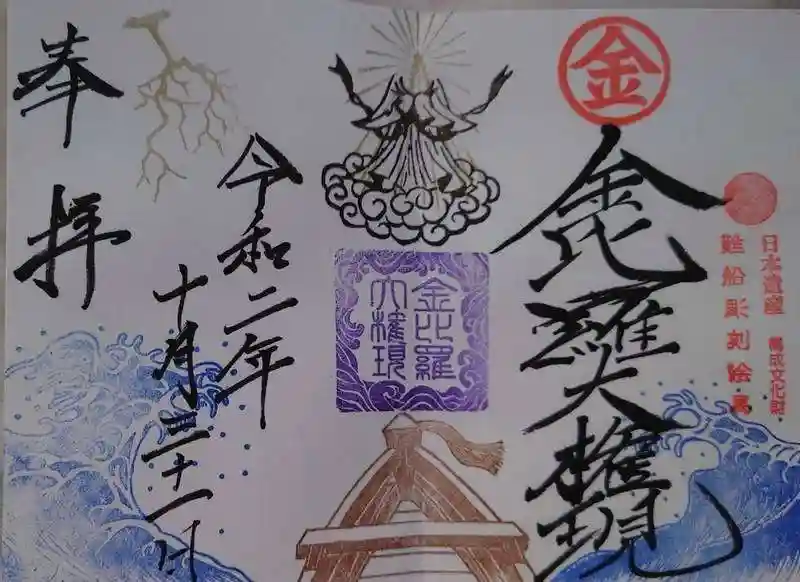 金
金毘羅大権現
日本遺産
構成文化財
難船彫刻絵馬
金比羅
大権現
奉拝
令和二年
十月三十一日